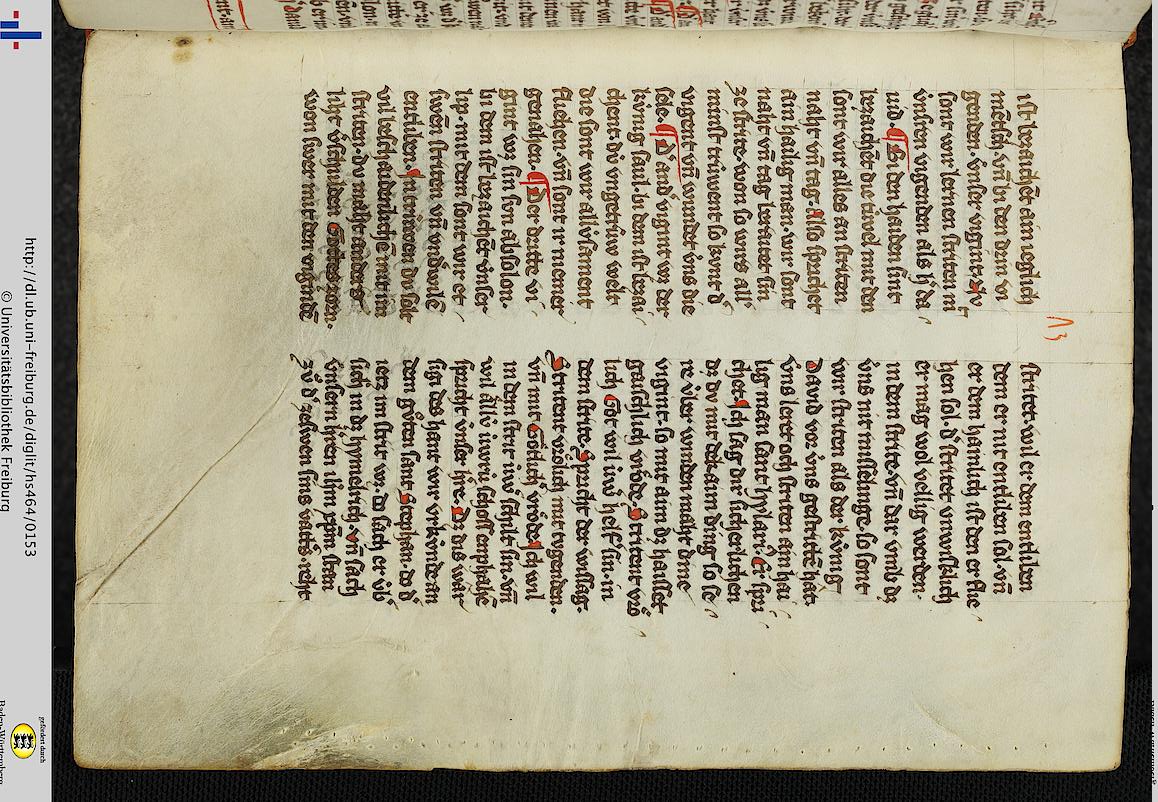 ist bezaichet ain ieglich
mēsch. vn̄ bi den drin vi
genden. vnser vigint. Av
sont wir lernen striten m̄
vnsren vigenden als h' da
uid. Bi den haiden sint
bezaichet die tivel mit den
sont wir alles an striten
naht vn̄ tag. Also sprichet
ain hailig man. wir sont
naht vn̄ tag
ze strite. won so wirs all'
minst trúwent so kvnt d'
vigent vn̄ die
sele. D' and' vigint wz der
kivnig saul. bi dem ist bezai
chent. dú vngetrúw welt
die sont wir all vsament
fliehen. vn̄ sont ir niemer
genahen. Der dritte vi
gint wz sin son absolon.
bi dem ist bezaichet vnser
lip. mit dem sont wir et
swen striten. vn̄
entliben. In trúwen dv solt
vil beschaidenlache mit im
striten. dv maht anders
liht
won swer mit den viginde
13
stritet. wil er dem entliben
dem er nit entliben sol. vn̄
er dem haimlich ist den er flie
hen sol. d' stritet vnwislich
er mag wol vellig werden.
in dem strite. vn̄ dar vmb dz
vns nit misselinge. so sont
wir striten als der kv́nig
David vor vns gestritten hat.
vns leret och striten ain hai
lig man sant hylari. Er spri
chet. Ich sag dir sicherlichen
dz dv mit dekaim ding so se
re v́berwinden maht dine
vigint. so mit aim dz haisset
gaischlich vrôde. Stritent vrô
lich. Got wil iuw̄ helf sin. in
dem strite. Spricht der wissag.
Stritent vrôlich mit tvgenden.
vn̄ mit Gôtlich vrôde. Ich wil
in dem strit iuw̄ schilt sin. vn̄
wil allv́ iuwri schoss enphahē
spricht vnser h're. Dz dis war
sig des hant wir vrkv́nde an
dem gv̊ten sant Stephan. do d'
ietz im strit wz. do sach er vb'
sich in dz hymelrich. vn̄ sach
vnsern h'ren ihm xpm stan
zv̊ d' zeswen sins vatt's reht
http://dl.ub.uni-freiburg.de/diglit/hs464/0153
© Universitätsbibliothek Freiburg
gefördert durch
Baden-Württemberg